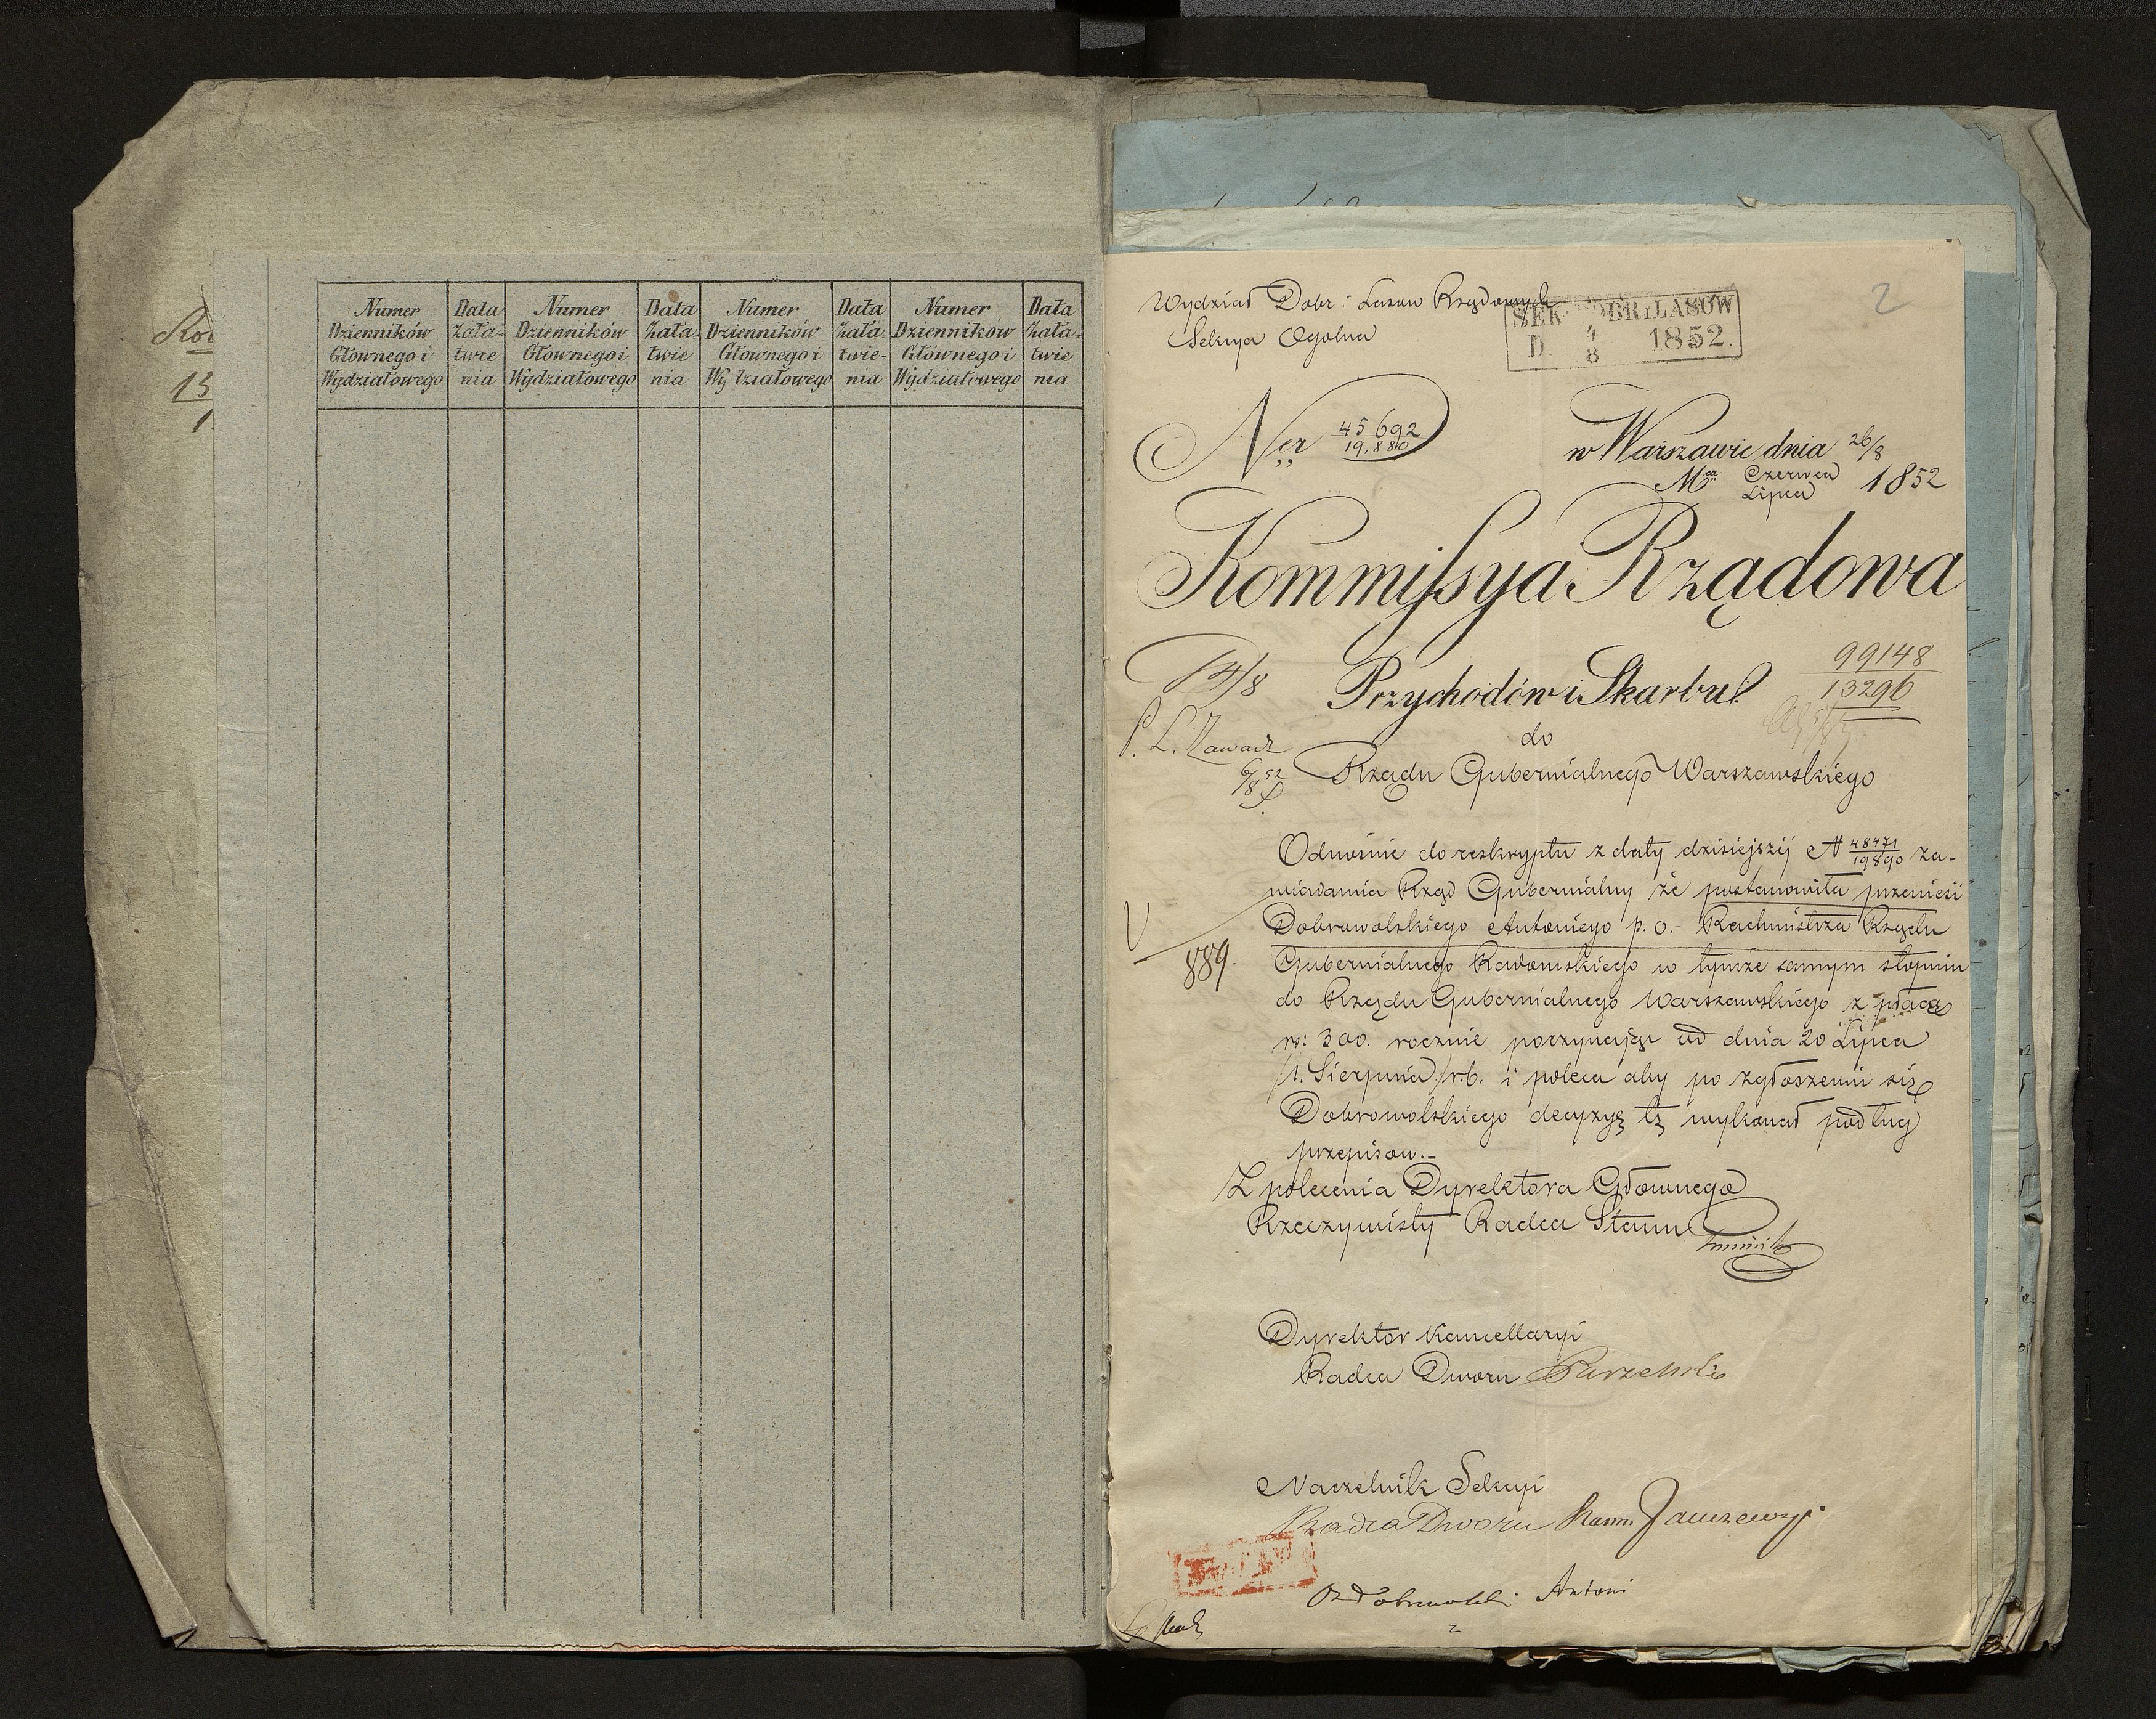 Numer Dzienników Głównego i Wydziałowego
Data Zała-twie nia
Numer Dzienników Głównego i Wydziałowego
Data Zała-twie nia
Numer Dzienników Głównego i Wydziałowego
Data Zała-twie-nia
Numer Dzienników Głównego i Wydziałowego
Data Zała-twie nia
2
Wydział Dobr i Lasow Rządowych
Sekcya Ogolna
SEK. DOBR I LASÓW
D. 4/8 1852.
Ner 45692/19.880
w Warszawie dnia 26/8
Mca Czerwca/Lipca 1852
Kommissya Rządowa
Przychodów i Skarbu
99148
13296
do
Rządu Gubernialnego Warszawskiego
Odnośnie do reskryptu z daty dzisiejszéj N 48471/19890 za-
wiadamia Rząd Gubernialny że postanowiła przenieść
Dobrowolskiego Antoniego p. o. Rachmistrza Rządu
889.
Gubernialnego Radomskiego w tymże samym stopniu
do Rządu Gubernialnego Warszawskiego z płacą
rs: 300. rocznie poczynając od dnia 20 Lipca
/1. Sierpnia/ r. b. i poleca aby po zgłoszeniu się
Dobrowolskiego decyzyę tę wykonał podług
przepisow.-
Z polecenia Dyrektora Głownego
Rzeczywisty Radca Stanu
Dyrektor Kancellaryi
Radca Dworu
Naczelnik Sekcyi
Radca Dworu
Dobrowolski Antoni
2